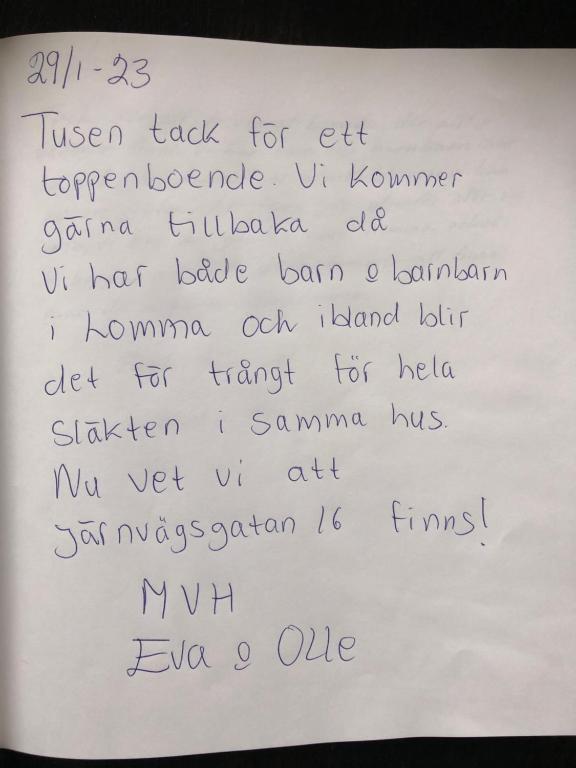 29/1-23
Tusen tack för ett
toppenboende. Vi kommer
gärna tillbaka då
vi har både barn o barnbarn
i Lomma och ibland blir
det för trångt för hela
släkten i samma hus.
Nu vet vi att
järnvägsgatan 16 finns!
MVH
Eva o Olle